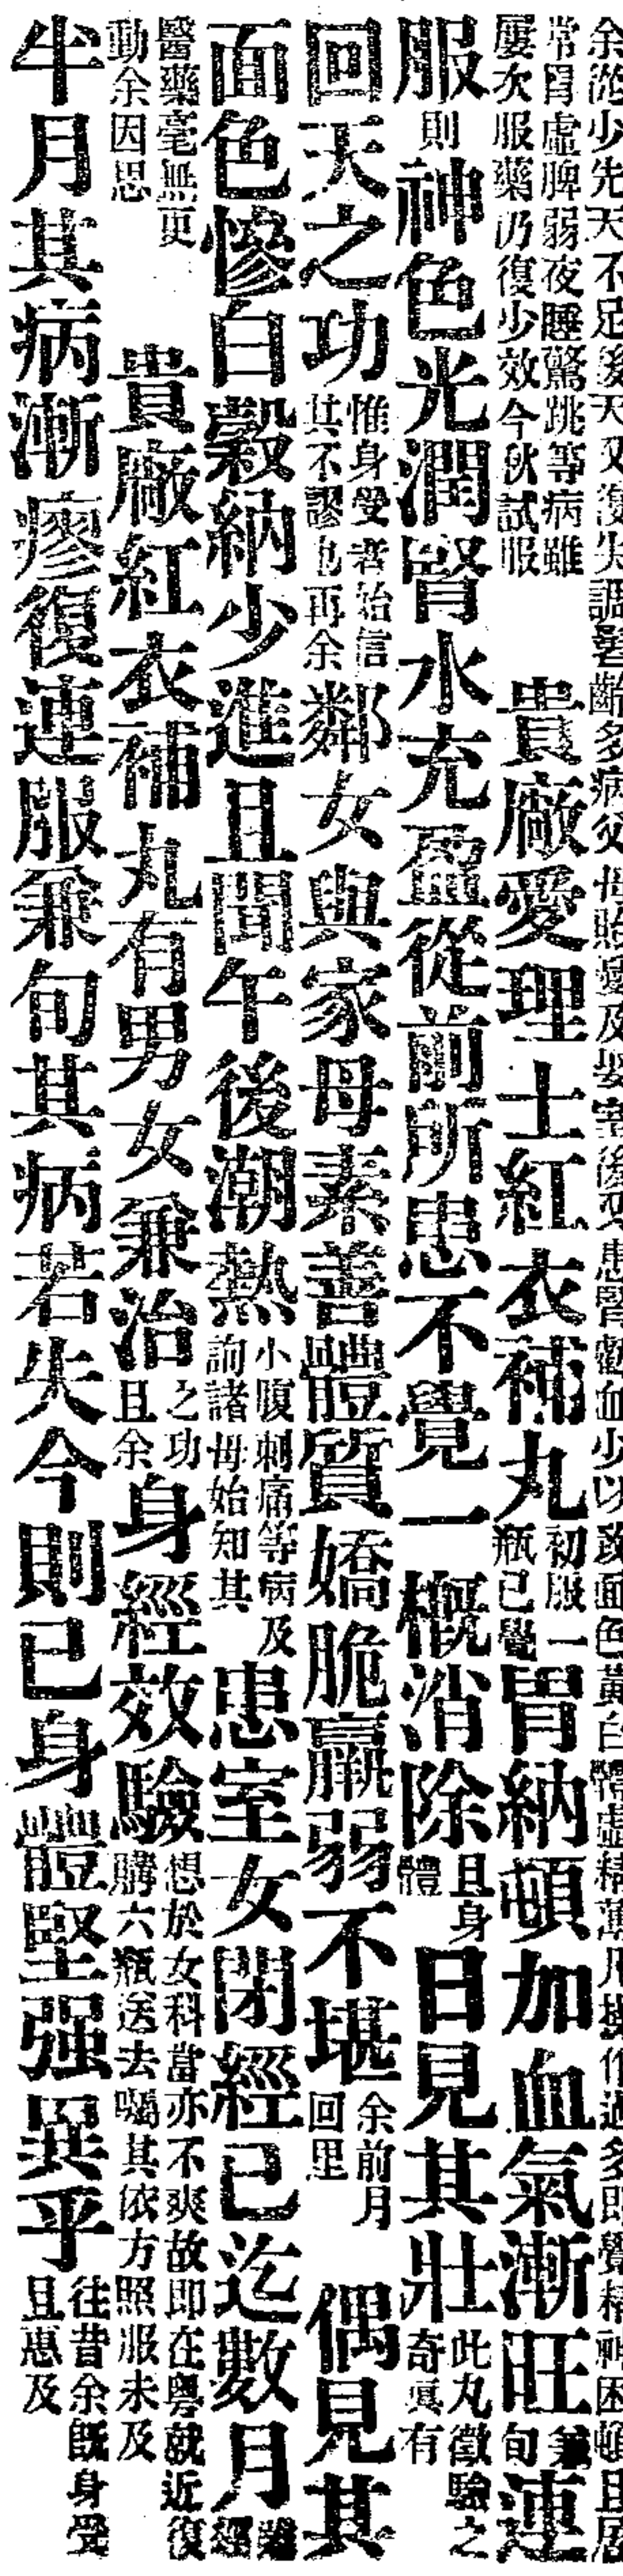 少先天不足後天又復失調髫齡多病父母照及娶室後又患腎虧血少以致面色黃白體虛精薄凡操作過多即覺精神困頓且屢
常胃虛脾弱夜睡驚跳等病雖屢次服藥仍復少效今秋試服 貴廠愛理士紅衣補丸初服一瓶已覺胃納頓加血氣漸旺兼旬連
服則神色光潤腎水充盈從前所患不覺一概消除且身體日見其壯此丸徵驗之奇真有
回天之功惟身受者始信其不謬也再余鄰女與家母素善體質嬌脆羸弱不堪余前月回里偶見其
面色慘白穀納少進且聞午後潮熱小腹刺痛等病及詢諸母始知其患室女閉經已迄數月
醫藥毫無更動余因思 貴廠紅衣補丸有男女兼治之功且余身經效驗想於女科當亦不爽故即在粵就近復購六瓶送去囑其依方照服未及
半月其病漸瘳復連服兼旬其病若失今則已身體堅强異乎往昔余既身受且惠及